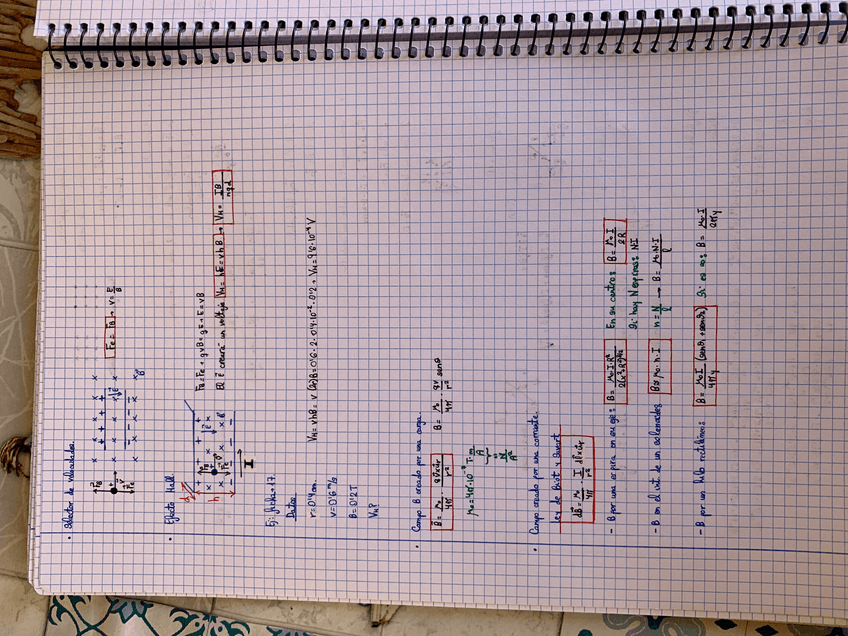 · Selector de velocidades.
Fe = FB → v = E/B
· Efecto Hall.
FB = Fe → qvB = qE → E = vB
El E creará un voltaje VH = hE = vhB → VH = IB/nqd
Ej. ficha 17.
Datos
r = 0'4 cm.
v = 0'6 m/s
B = 0'2 T
VH?
VH = vhB = v(2r)B = 0'6 · 2 · 0'4·10⁻² · 0'2 → VH = 9'6·10⁻⁴ V
· Campo B creado por una carga.
B = μ₀/4π · qv×ur/r² B = μ₀/4π · qv senθ/r²
μ₀ = 4π·10⁻⁷ T·m/A
N/A²
· Campo creado por una corriente.
Ley de Biot y Savart
dB = μ₀/4π · I/r² dl × ur
- B por una espira en su eje: B = μ₀·I·R²/2(x²+R²)^3/2 En su centro: B = μ₀·I/2R
Si hay N espiras: NI
- B en el int. de un solenoide: B = μ₀·n·I n = N/l → B = μ₀·N·I/l
- B por un hilo rectilíneo: B = μ₀I/4πy (senθ₁ + senθ₂) Si es ∞: B = μ₀·I/2πy